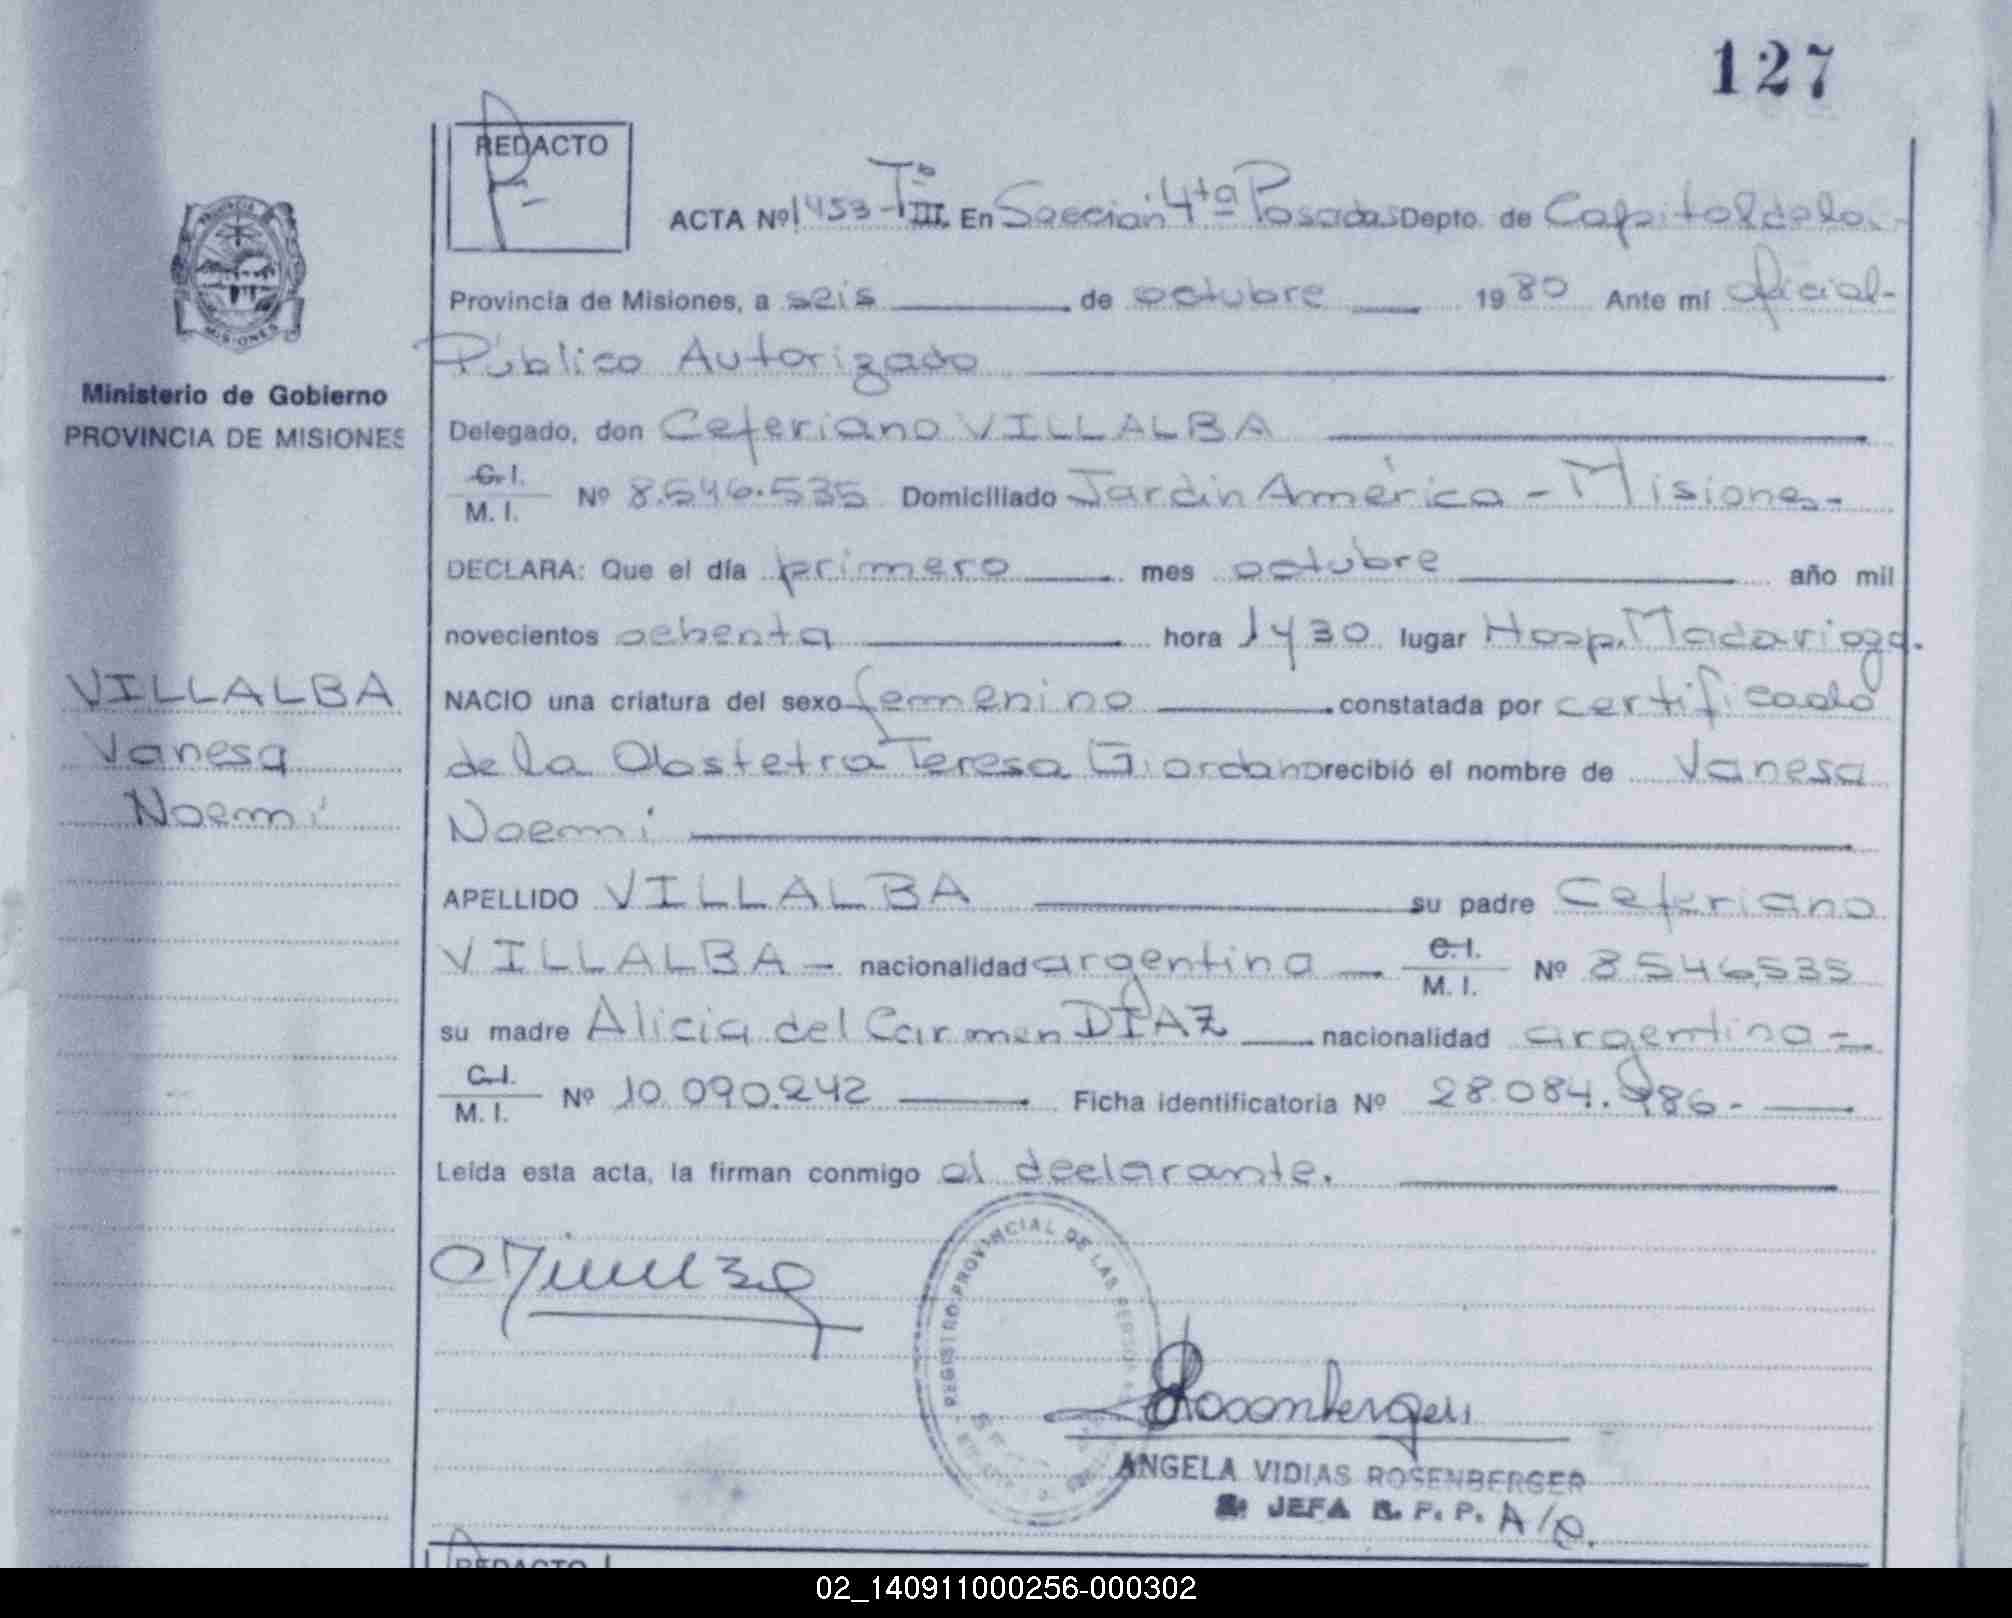 127
REDACTO
ACTA Nº 1453 - Tº III. En Sección 4ta Posadas Depto. de Capital de la
PROVINCIA
MISIONES
Provincia de Misiones, a seis de octubre 1980 Ante mí oficial-
Público Autorizado
Ministerio de Gobierno
PROVINCIA DE MISIONES
Delegado, don Ceferiano VILLALBA
C.I.
M. I. Nº 8.546.535 Domiciliado Jardín América - Misiones-
DECLARA: Que el día primero mes octubre año mil
novecientos ochenta hora 1430 lugar Hosp. Madariaga.
VILLALBA
Vanesa
Noemí
NACIO una criatura del sexo femenino constatada por certificado
de la Obstetra Teresa Giordano recibió el nombre de Vanesa
Noemí
APELLIDO VILLALBA su padre Ceferiano
VILLALBA - nacionalidad argentina C.I.
M. I. Nº 8.546.535
su madre Alicia del Carmen DIAZ nacionalidad argentina -
C.I.
M. I. Nº 10.090.242 Ficha identificatoria Nº 28.084.986.-
Leída esta acta, la firman conmigo el declarante.
REGISTRO PROVINCIAL DE LAS PERSONAS
Rosenberger
ANGELA VIDIAS ROSENBERGER
JEFA R. P. P. A/C.
REDACTO
02_140911000256-000302